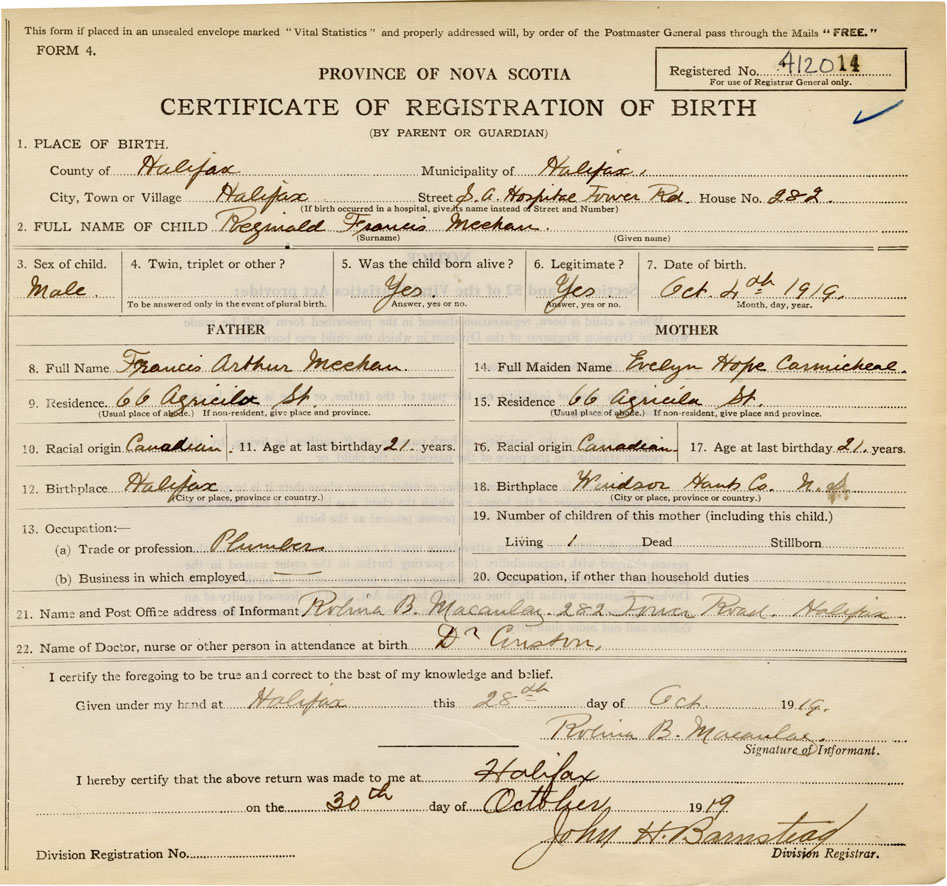 This form if placed in an unsealed envelope marked "Vital Statistics" and properly addressed will, by order of the Postmaster General pass through the Mails "FREE."
FORM 4.
Registered No. 412014
For use of Registrar General only.
PROVINCE OF NOVA SCOTIA
CERTIFICATE OF REGISTRATION OF BIRTH
(BY PARENT OR GUARDIAN)
1. PLACE OF BIRTH.
County of Halifax Municipality of Halifax.
City, Town or Village Halifax Street S. A. Hospital Tower Rd. House No. 282.
(If birth occurred in a hospital, give its name instead of Street and Number)
2. FULL NAME OF CHILD Reginald Francis Meehan.
(Surname) (Given name)
3. Sex of child. 4. Twin, triplet or other? 5. Was the child born alive? 6. Legitimate? 7. Date of birth.
Male. Yes. Yes. Oct. 4th 1919.
To be answered only in the event of plural birth. Answer, yes or no. Answer, yes or no. Month, day, year.
FATHER MOTHER
8. Full Name Francis Arthur Meehan. 14. Full Maiden Name Evelyn Hope Carmicheal.
9. Residence. 66 Agricila St. 15. Residence 66 Agricila St.
(Usual place of abode.) If non-resident, give place and province. (Usual place of abode.) If non-resident, give place and province.
10. Racial origin Canadian. 11. Age at last birthday 21. years. 16. Racial origin Canadian. 17. Age at last birthday 21. years.
12. Birthplace Halifax 18. Birthplace Windsor Hants Co. N. S.
(City or place, province or country.) (City or place, province or country.)
13. Occupation:— 19. Number of children of this mother (including this child.)
(a) Trade or profession Plumber Living 1 Dead Stillborn
(b) Business in which employed — 20. Occupation, if other than household duties
21. Name and Post Office address of Informant Rolina B. Macaulay. 282 Tower Road. Halifax
22. Name of Doctor, nurse or other person in attendance at birth Dr
I certify the foregoing to be true and correct to the best of my knowledge and belief.
Given under my hand at Halifax this 28th day of Oct. 1919.
Rolina B. Macaulay.
Signature of Informant.
I hereby certify that the above return was made to me at Halifax
on the 30th day of October 1919
John H. Barnstead
Division Registration No. Division Registrar.